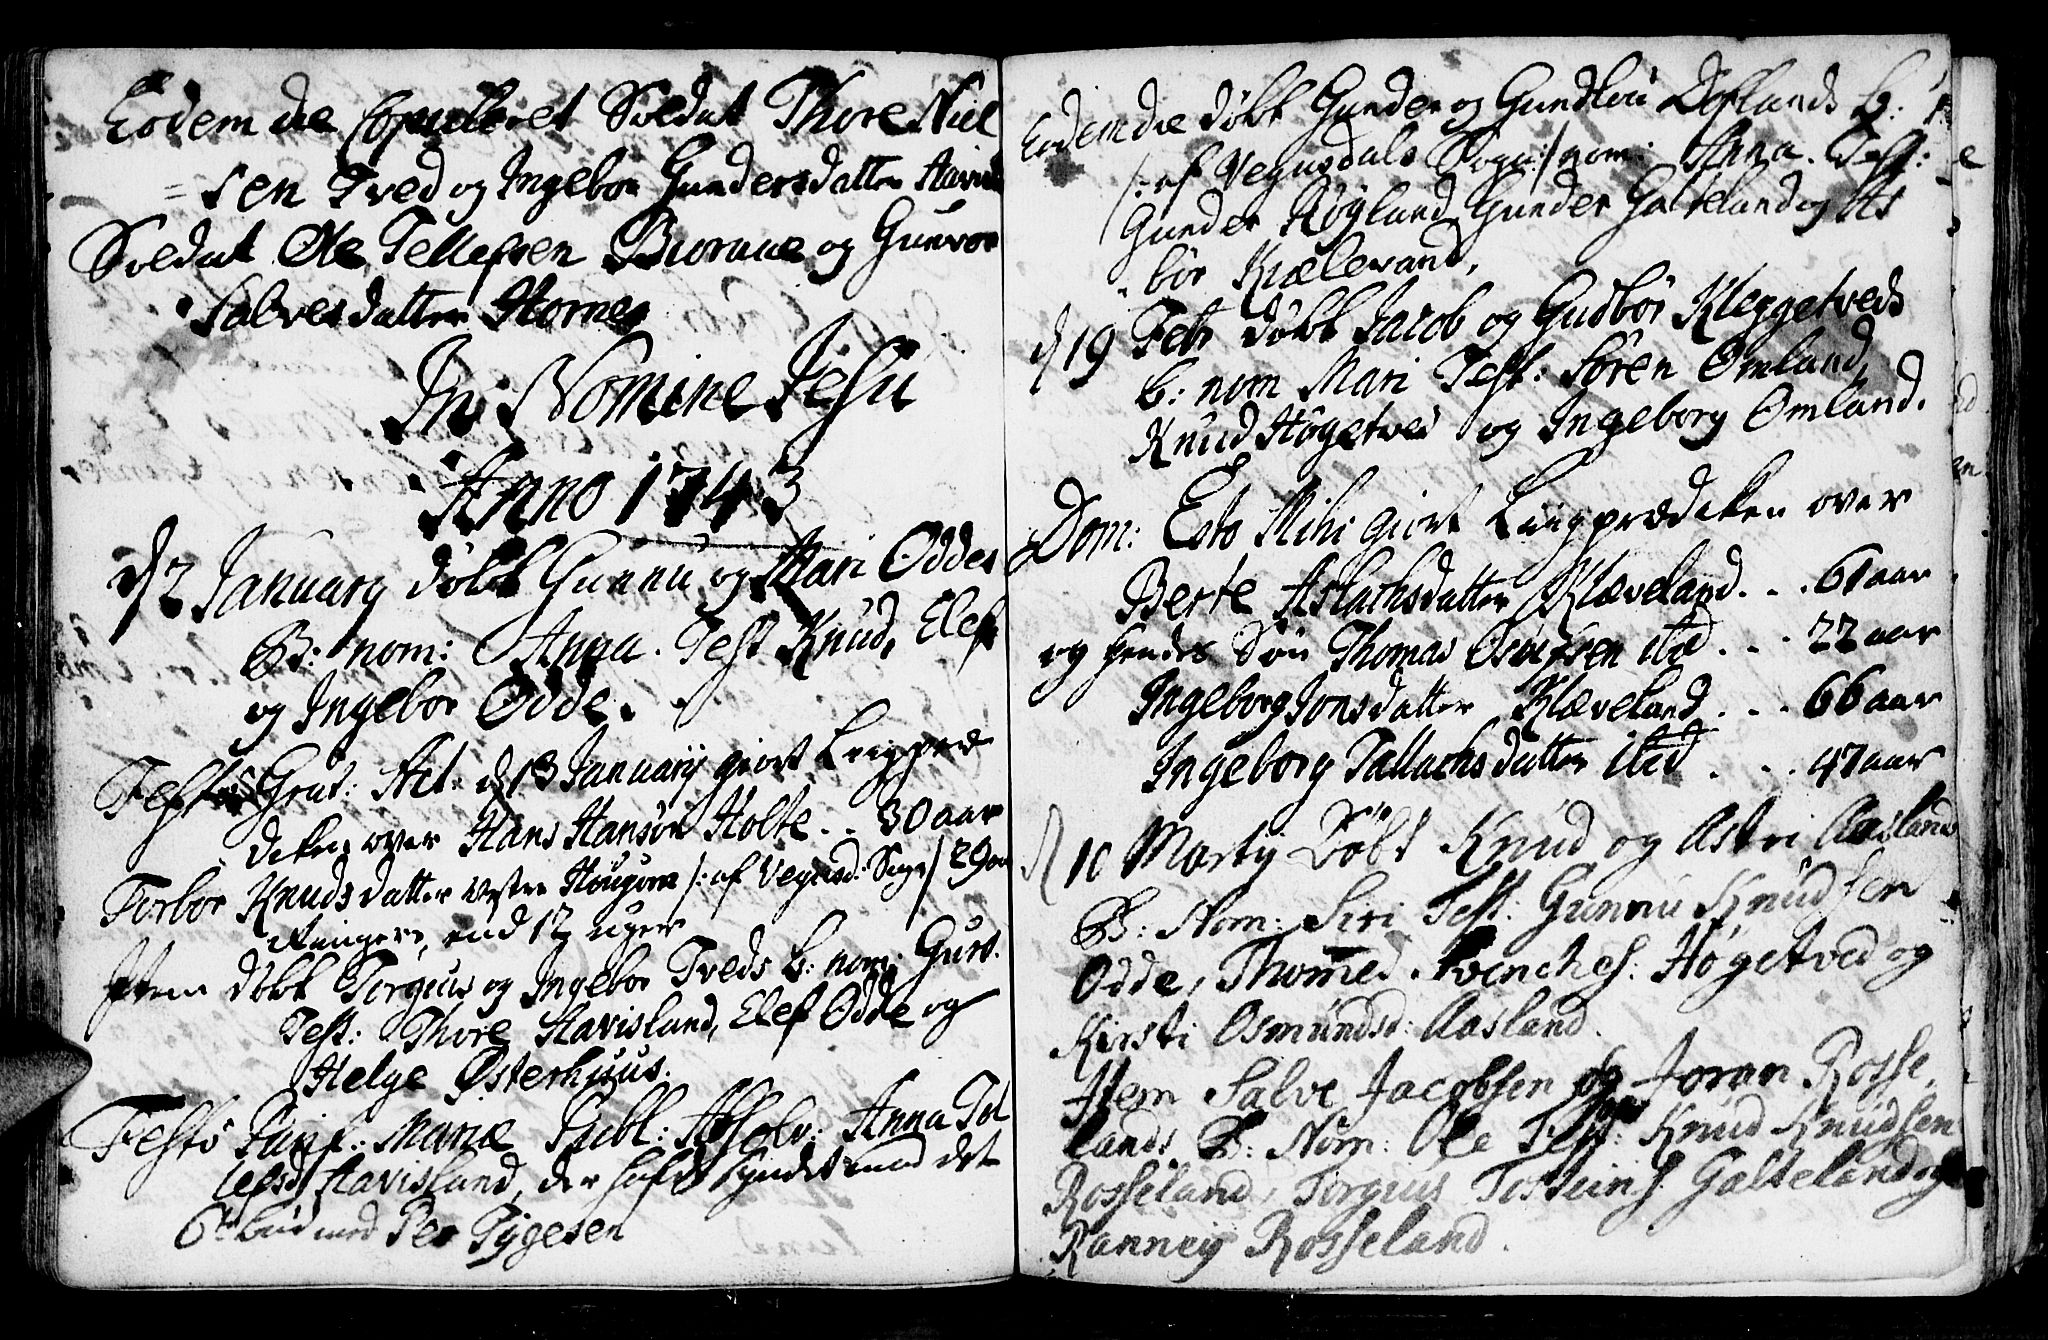 Eodem die Copuleret Soldat Thore Niel
= sen Tved og Ingebor Gundersdatter
Soldat Ole Tellefsen Biorane og Gunvor
Salvesdatter Hornes
In Nomine Jesu
Anno 1743
d 2 January døbt Gunnu og Mari Oddes
B: nom: Anna. Test Knud, Elef
og Ingebor Odde.
Festo Grat: Act: d 13 Januarij giort Liigpræ
deken over Hans Hansøn Holte .. 30 aar
Torbor Knudsdatter vestre /: af Vegusd: Sogn/ 29 aar
Ringere, end 12 uger
Item døbt Torgius og Ingebor Tveds b: nom: Guro.
Test: Thore Havisland, Elef Odde og
Helge Østerhuus.
Festo Purif: Mariæ Publ: Absolv: Anna Tol
lefsd Havisland, der hafde Syndet imod det
6te bud med Per Tygesen
Eodem die døbt Gunder og Gundlou Deflands b:
/: af Vegusdals Sogn:/ nom: Anna. Test:
Gunder Høyland, Gunder Galteland og As
bør Kiælevand,
d 19 Febr døbt Jacob og Gudbør Kleggetveds
b: nom Mari Test: Søren Omland,
Knud Høgetved og Ingeborg Omland.
Dom: Esto Mihi giort Liigprædeken over
Berte Aslachsdatter Klæveland. . . 61 aar
og hendes Søn Thomas Osulfsen ibid . . . 22 aar
Ingeborg Jonsdatter Klæveland . . . 66 aar
Ingeborg Tallachsdatter ibid . . . 47 aar
d 10 Marty Døbt Knud og Astri Aaslands
B: Nom: Siri Test: Gunnu Knudsen
Odde, Thommes Svenches: Høgetved og
Kirsti Osmundsd: Aasland.
Item Salve Jacobsen og Joran Rosse
lands B: Nom: Ole Test: Knud Knudsen
Rosseland, Torgius Tosteins: Galteland og
Ranney Rosseland.